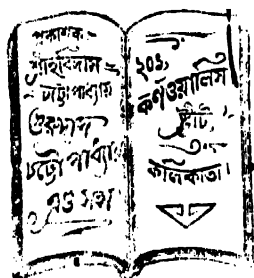 প্রকাশক–
শ্রীহরিদাস
চট্টোপাধ্যায়
গুরুদাস
চট্টোপাধ্যায়
এণ্ড সন্স
২০১,
কর্ণওয়ালিস
স্ট্রীট,
কলিকাতা।